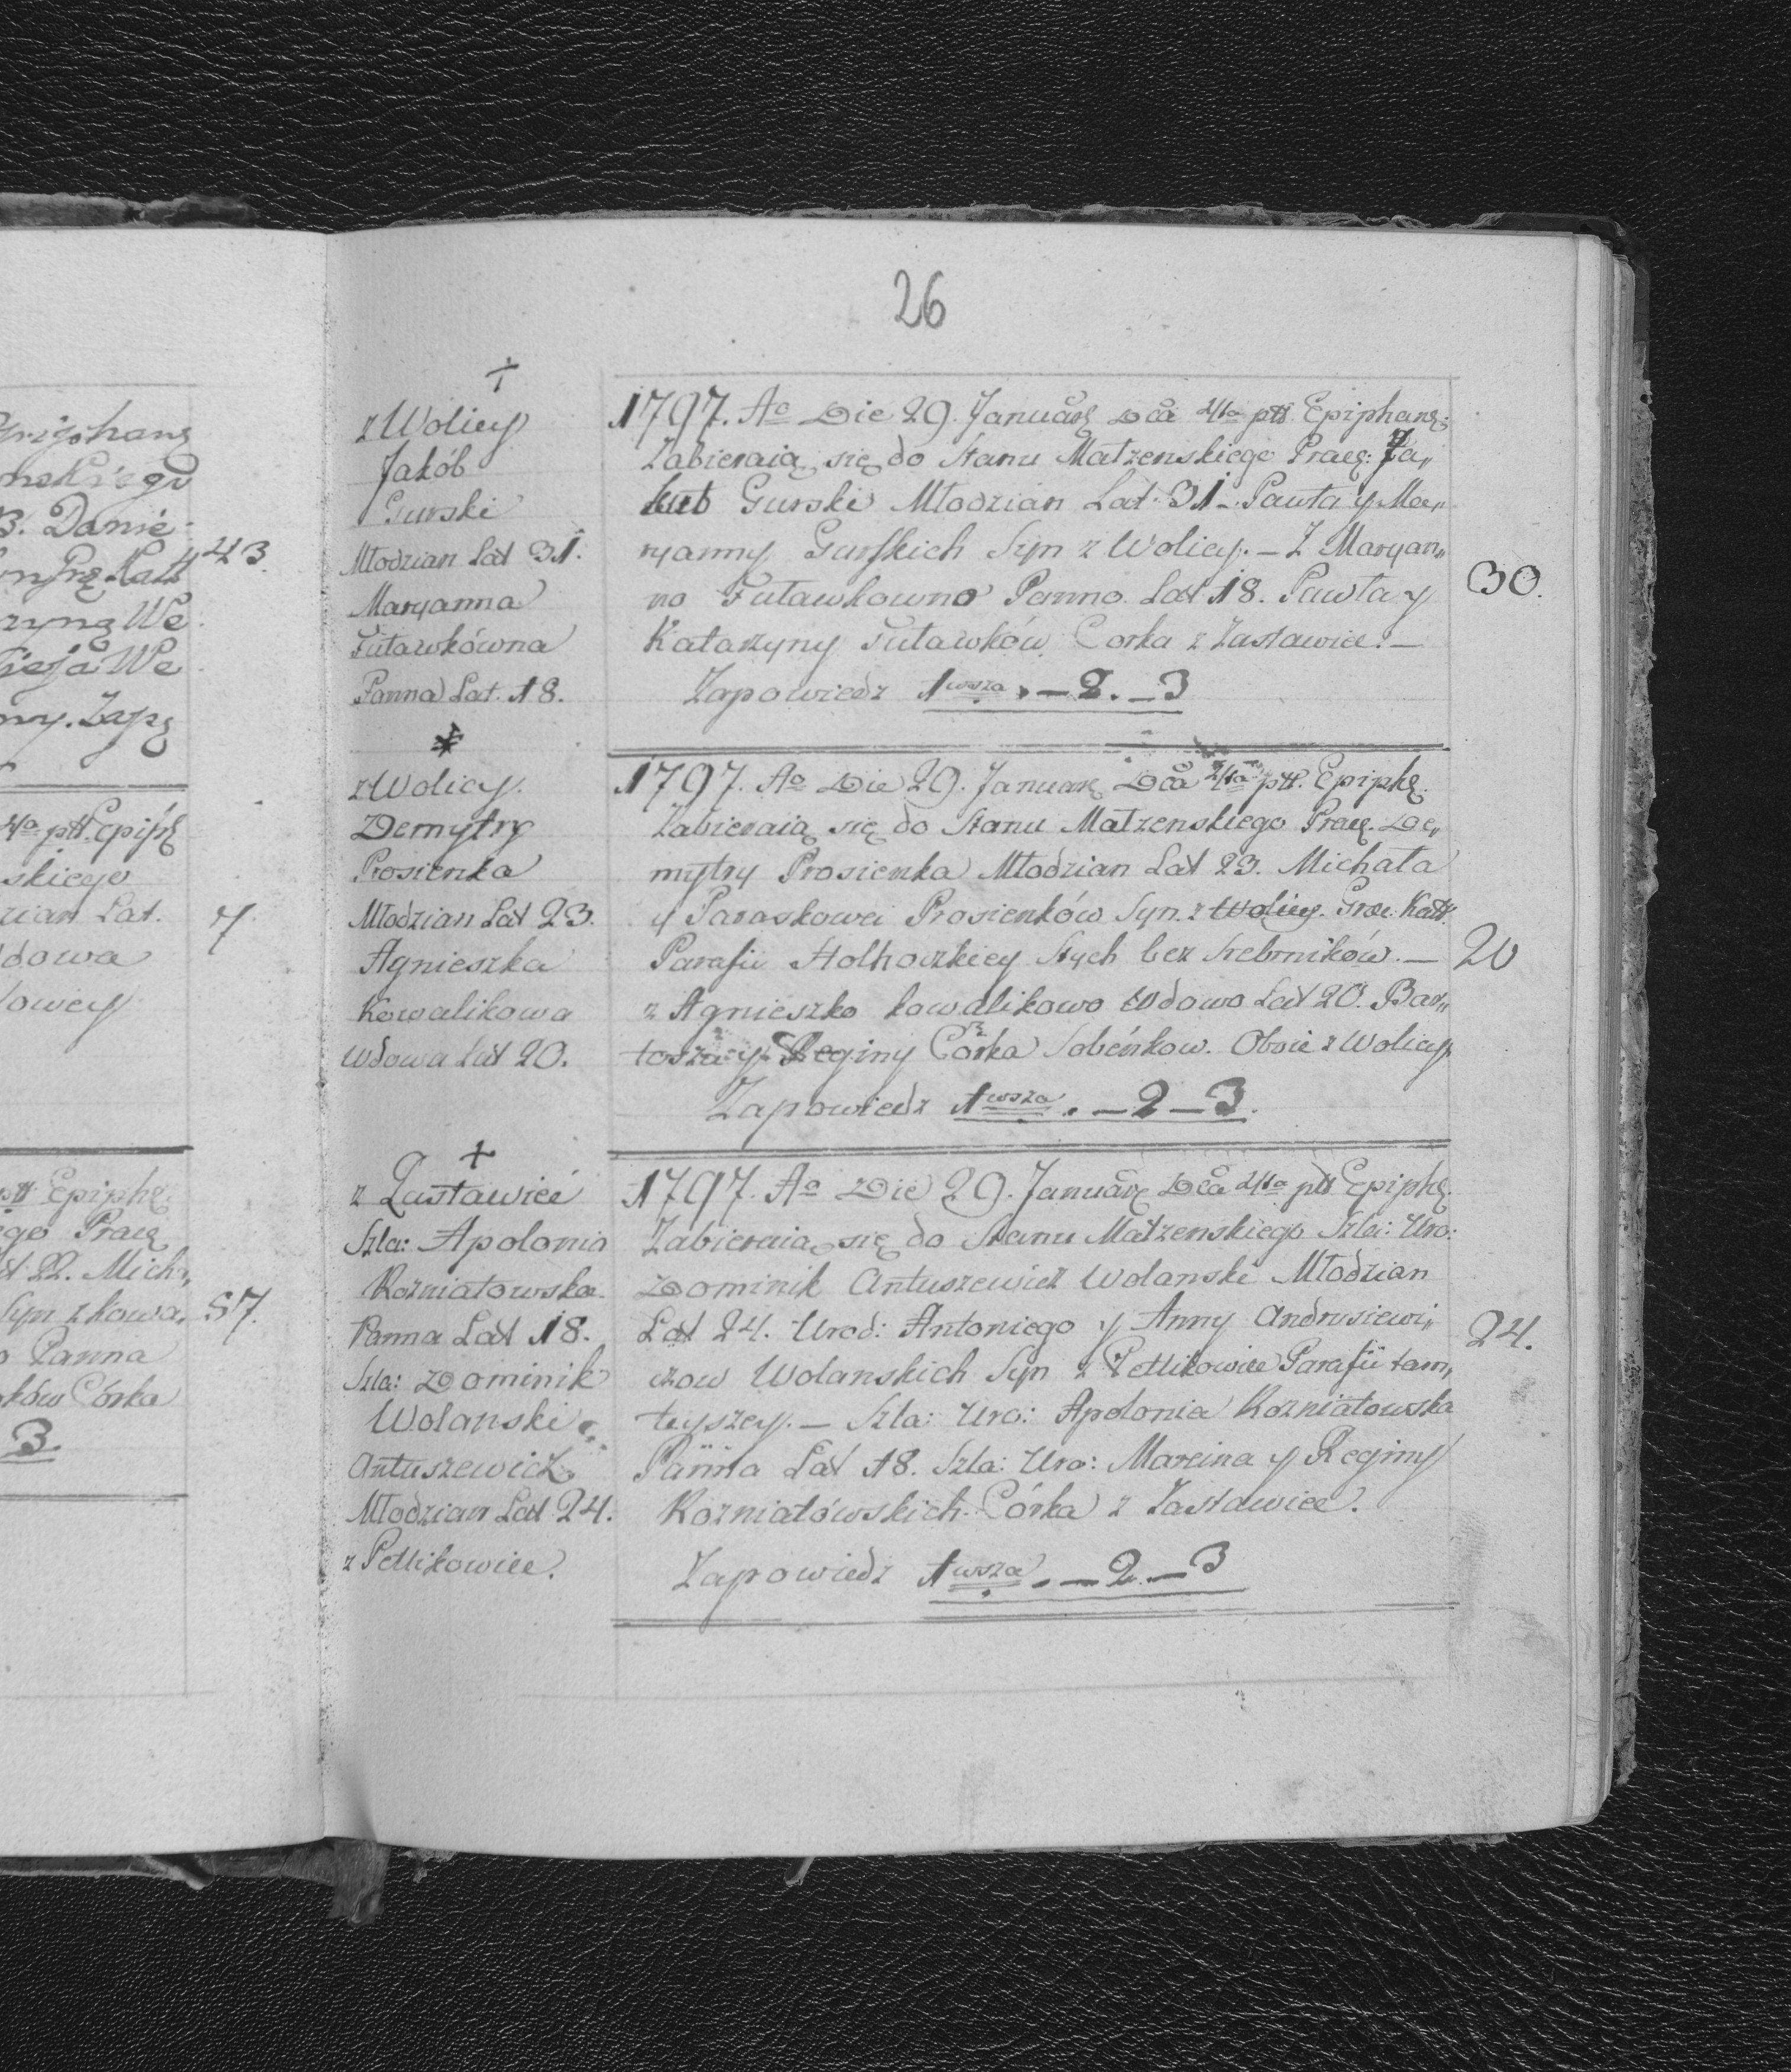 26
z Wolicy
Jakób
Gurski
Młodzian Lat 31.
Maryanna
Futawkówna
Panna Lat. 18.
1797. Ao Die 29. Januarÿ Dca 4ta ptt Epiphanÿ:
Zabieraią się do Stanu Małzenskiego Praeę: Ja„
kub Gurski Młodzian Lat 31 – Pawła y Ma„
ryanny Gurskich Syn z Wolicy. – Z Maryan„
no Futawkowno Panno Lat 18. Pawła y
Katarzyny Futawków Corka z Zastawiec. –
Zapowiedz 1wsza. – 2. – 3
30.
z Wolicy.
Demytry
Prosienka
Młodzian Lat 23.
Agnieszka
Kowalikowa
Wdowa Lat 20.
1797. Ao Die 29. Januarÿ Dca 4ta ptt. Epiphę.
Zabieraią się do Stanu Małzenskiego Praeę. De„
mytry Prosienka Młodzian Lat 23. Michała
y Paraskowei Prosienków Syn. z Wolicy. Grae. Katt.
Parafii Hołhoczkiey Stych bez Srebrników. –
z Agnieszko kowalikowo Wdowo Lat 20. Bar„
tosza y Reginy Córka Sobeńkow. Oboie z Wolicy.
Zapowiedz 1wsza. – 2 – 3.
20
z Zastawiec
Szla: Apolonia
Rozniatowska
Panna Lat 18.
Szla: Dominik
Wolanski
Antuszewicz
Młodzian Lat 24.
z Petlikowiec.
1797. Ao Die 29. Januarÿ Dca 4ta ptt Epiphę.
Zabieraią się do Stanu Małzenskiego Szla: Uro:
Dominik Antuszewicz Wolanski Młodzian
Lat 24. Urod: Antoniego y Anny Andrusiewi„
czow Wolanskich Syn z Petlikowiec Parafii tam„
teyszey. – Szla: Uro: Apolonia Rozniatowska
Panna Lat 18. Szla: Uro: Marcina y Reginy
Rozniatówskich Córka z Zastawiec.
Zapowiedz 1wsza. – 2. – 3
24.